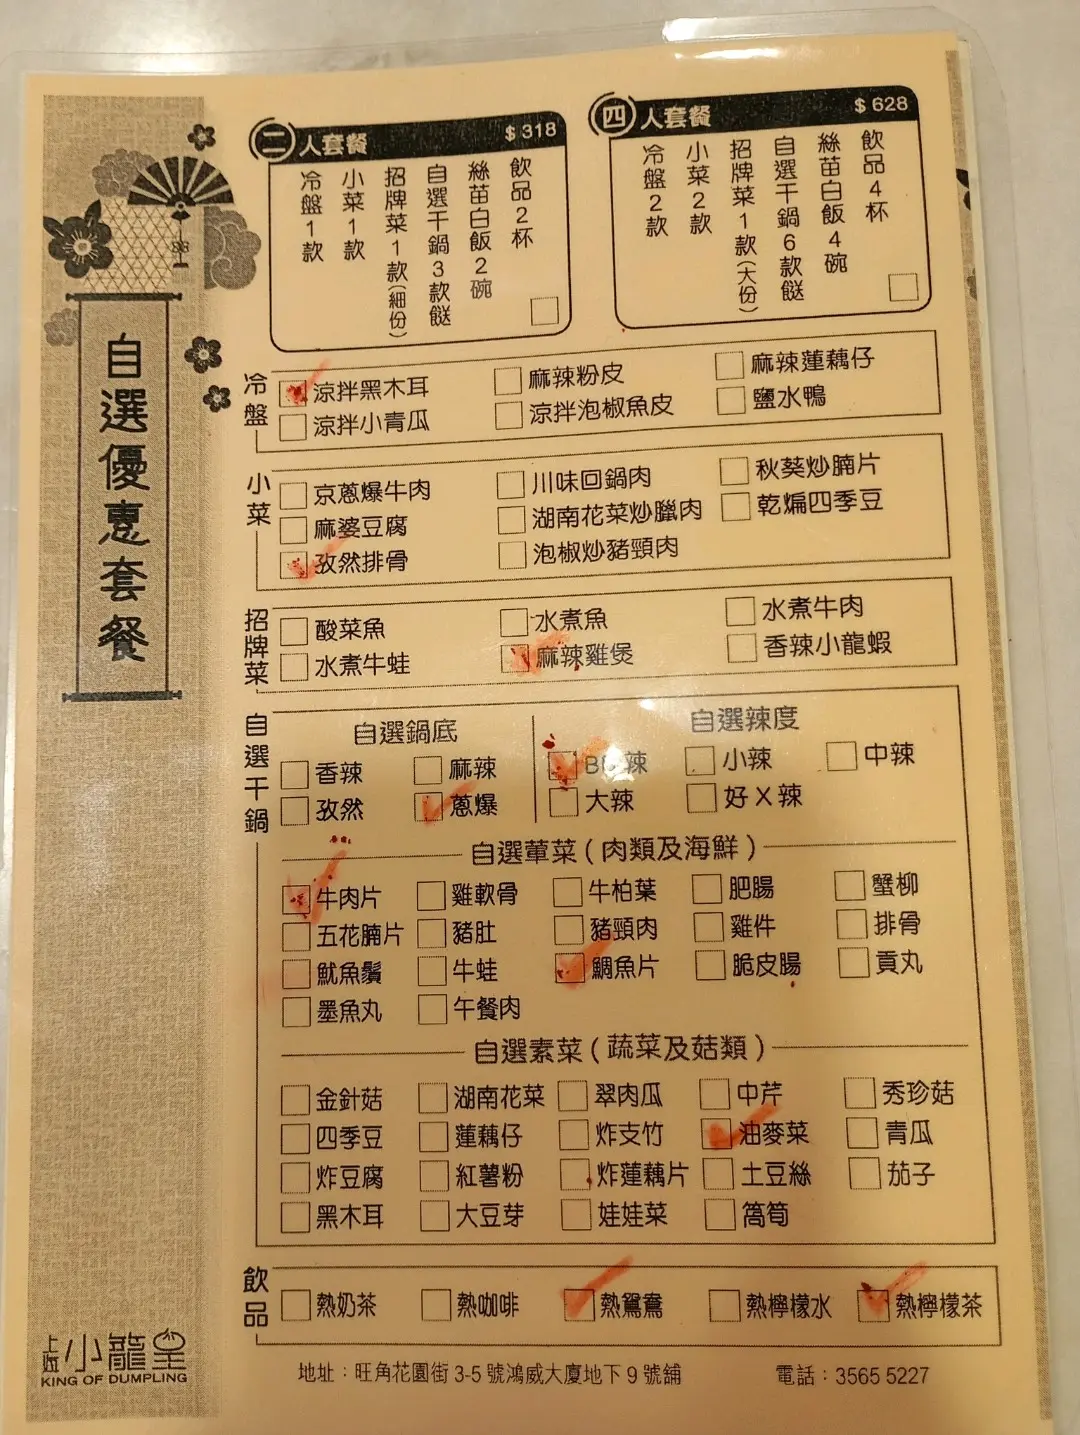 自選優惠套餐
二人套餐 $318
冷盤1款
小菜1款
招牌菜1款(細份)
自選干鍋3款餸
絲苗白飯2碗
飲品2杯
四人套餐 $628
冷盤2款
小菜2款
招牌菜1款(大份)
自選干鍋6款餸
絲苗白飯4碗
飲品4杯
冷盤
涼拌黑木耳 麻辣粉皮 麻辣蓮藕仔
涼拌小青瓜 涼拌泡椒魚皮 鹽水鴨
小菜
京蔥爆牛肉 川味回鍋肉 秋葵炒腩片
麻婆豆腐 湖南花菜炒臘肉 乾煸四季豆
孜然排骨 泡椒炒豬頸肉
招牌菜
酸菜魚 水煮魚 水煮牛肉
水煮牛蛙 麻辣雞煲 香辣小龍蝦
自選干鍋
自選鍋底 自選辣度
香辣 麻辣 BB辣 小辣 中辣
孜然 蔥爆 大辣 好X辣
自選葷菜(肉類及海鮮)
牛肉片 雞軟骨 牛柏葉 肥腸 蟹柳
五花腩片 豬肚 豬頸肉 雞件 排骨
魷魚鬚 牛蛙 鯛魚片 脆皮腸 貢丸
墨魚丸 午餐肉
自選素菜(蔬菜及菇類)
金針菇 湖南花菜 翠肉瓜 中芹 秀珍菇
四季豆 蓮藕仔 炸支竹 油麥菜 青瓜
炸豆腐 紅薯粉 炸蓮藕片 土豆絲 茄子
黑木耳 大豆芽 娃娃菜 萵筍
飲品
熱奶茶 熱咖啡 熱鴛鴦 熱檸檬水 熱檸檬茶
上海小籠皇
KING OF DUMPLING
地址：旺角花園街3-5號鴻威大廈地下9號舖 電話：3565 5227